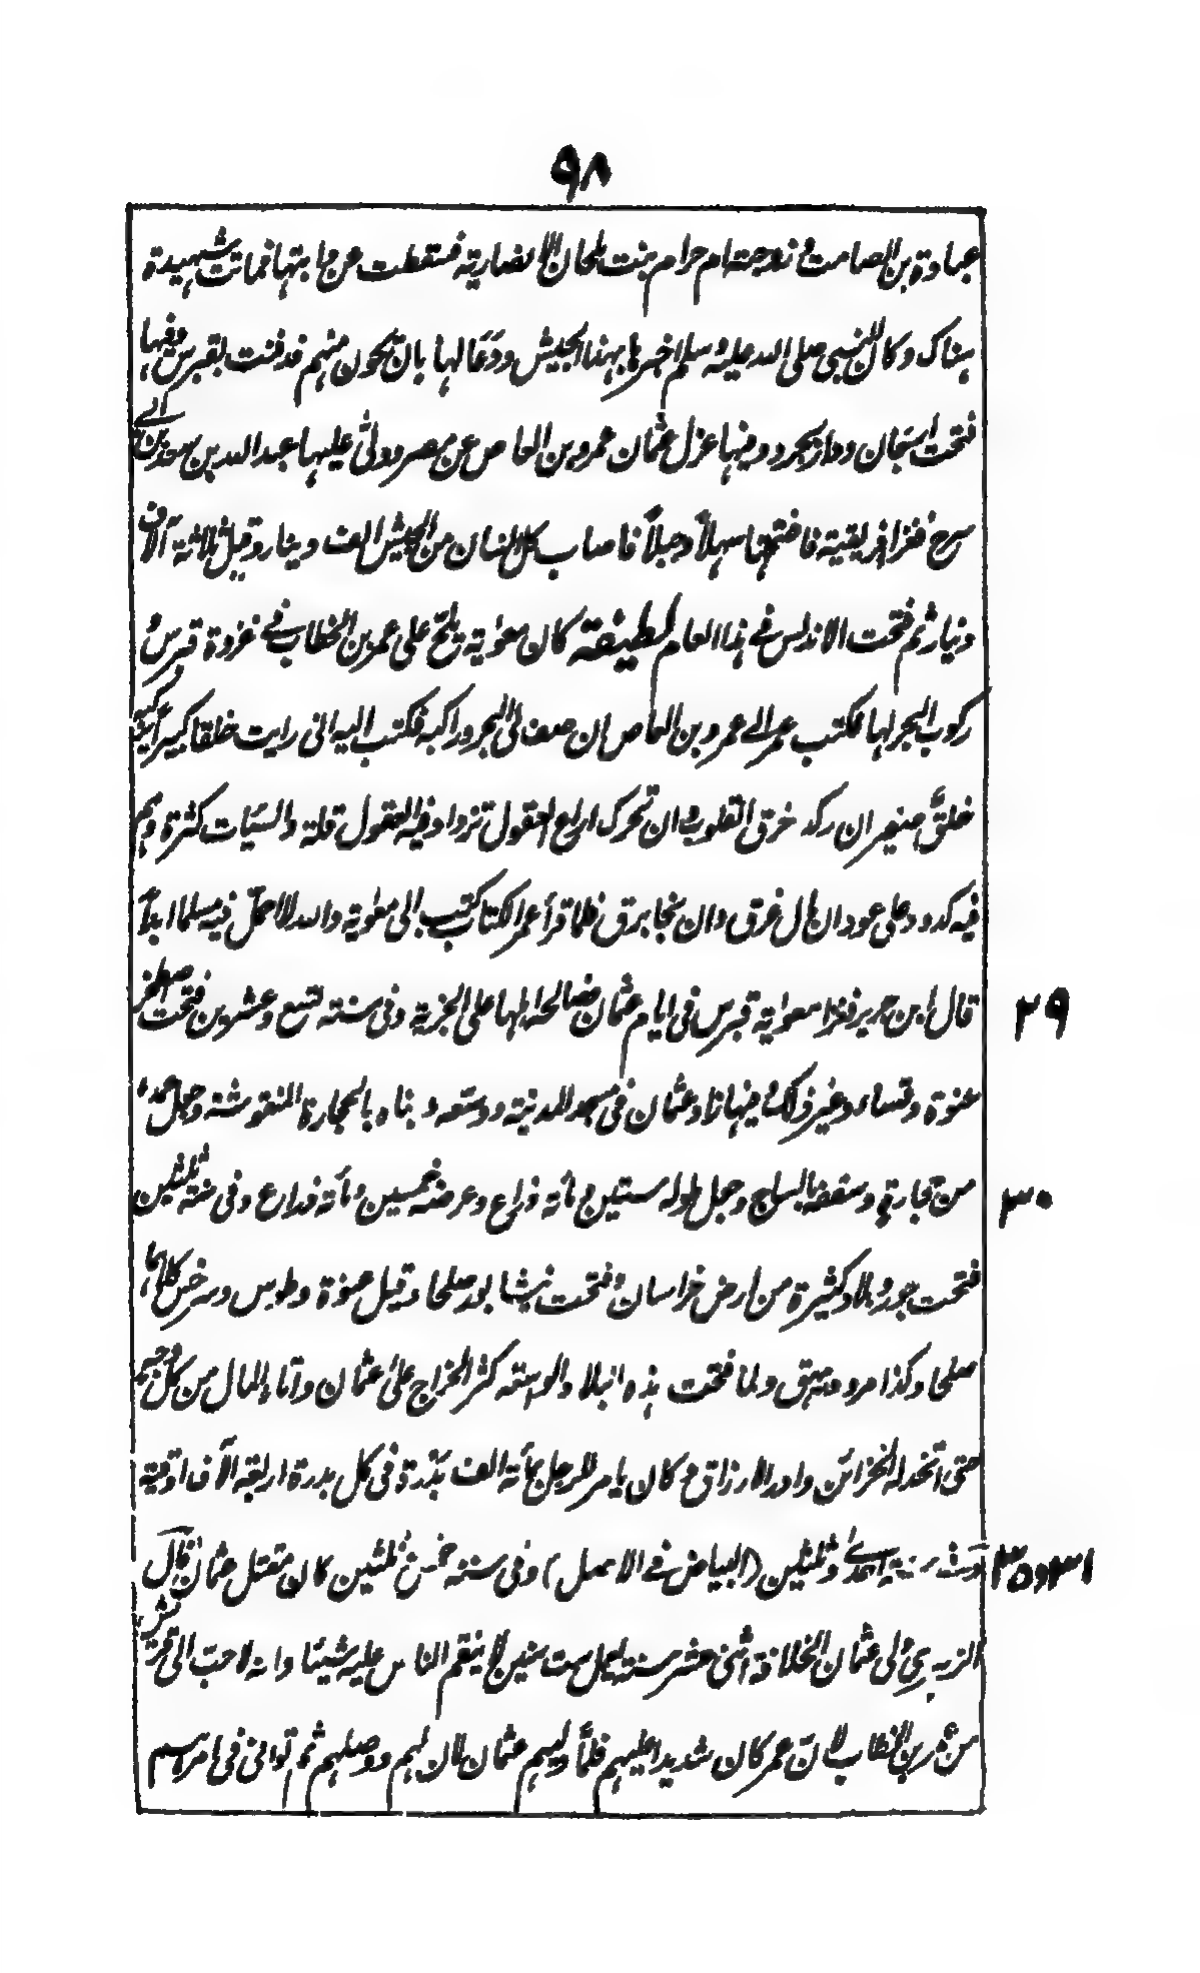 ٩٨
عبادة بن الصامت و زوجته ام حرام بنت ملحان الانصارية فسقطت عن دابتها فماتت شهيدة
هناك وكان النبى صلى الله عليه وسلم اخبرها بهذا الجيش ودعا لها بان تكون منهم فدفنت بقبرس وفيها
فتحت ارجان ودرابجرد وفيها عزل عثمان عمرو بن العاص عن مصر وولّى عليها عبد الله بن سعد بن ابى
سرح فغزا افريقية فافتتحها سهلاً وجبلاً فاصاب كل انسان من الجيش الف دينار وقيل ثلاثة آلاف
دينار ثم فتحت الاندلس فى هذا العام لطيفة كان معوية يلحّ على عمر بن الخطاب فى غزوة قبرس و
ركوب البحر لها فكتب عمر الى عمرو بن العاص ان صف لى البحر وراكبه فكتب اليه انى رايت خلقا كبيرا يركبه
خلقٌ صغير ان ركد خرق القلوب وان تحرك اراع العقول تزداد فيه العقول قلة والسيّات كثرة وهم
فيه كدود على عود ان مال غرق وان نجا برق فلما قرأ عمر الكتاب كتب الى معوية والله لا احمل فيه مسلما ابداً
قال ابن جرير فغزا معوية قبرس فى ايام عثمان فصالحه اهلها على الجزية وفى سنة تسع وعشرين فتحت اصطخر
٢٩
عنوة وقساء وغير ذلك وفيها زاد عثمان فى مسجد المدينة ووسّعه وبناه بالحجارة المنقوشة وجعل عمده
من حجارة وسقفه بالساج وجعل طوله ستين ومأئة ذراع وعرضه خمسين ومأئة ذراع وفى سنة ثلثين
٣٠
فتحت جور وبلاد كثيرة من ارض خراسان وفتحت نيشابور صلحا وقيل عنوة وطوس وسرخس كلاهما
صلحا وكذا مرو وبيهق ولما فتحت هذه البلاد الواسعة كثر الخراج على عثمان واتاه المال من كل وجه
حتى اتخذ له الخزائن وادر الارزاق وكان يامر للرجل بمأئة الف بدرة فى كل بدرة اربعة آلاف اوقية
وفى سنة احدى وثلثين (البياض فى الاصل) وفى سنة خمس وثلثين كان مقتل عثمان قال
٣١ و٣٥
الزهرى ولى عثمان الخلافة اثنى عشر سنة يعمل ست سنين لا ينقم الناس عليه شيئا وانه لاحب الى قريش
من عمر بن الخطاب لانّ عمر كان شديدا عليهم فلمّا وليهم عثمان لان لهم ووصلهم ثم توانى فى امرهم